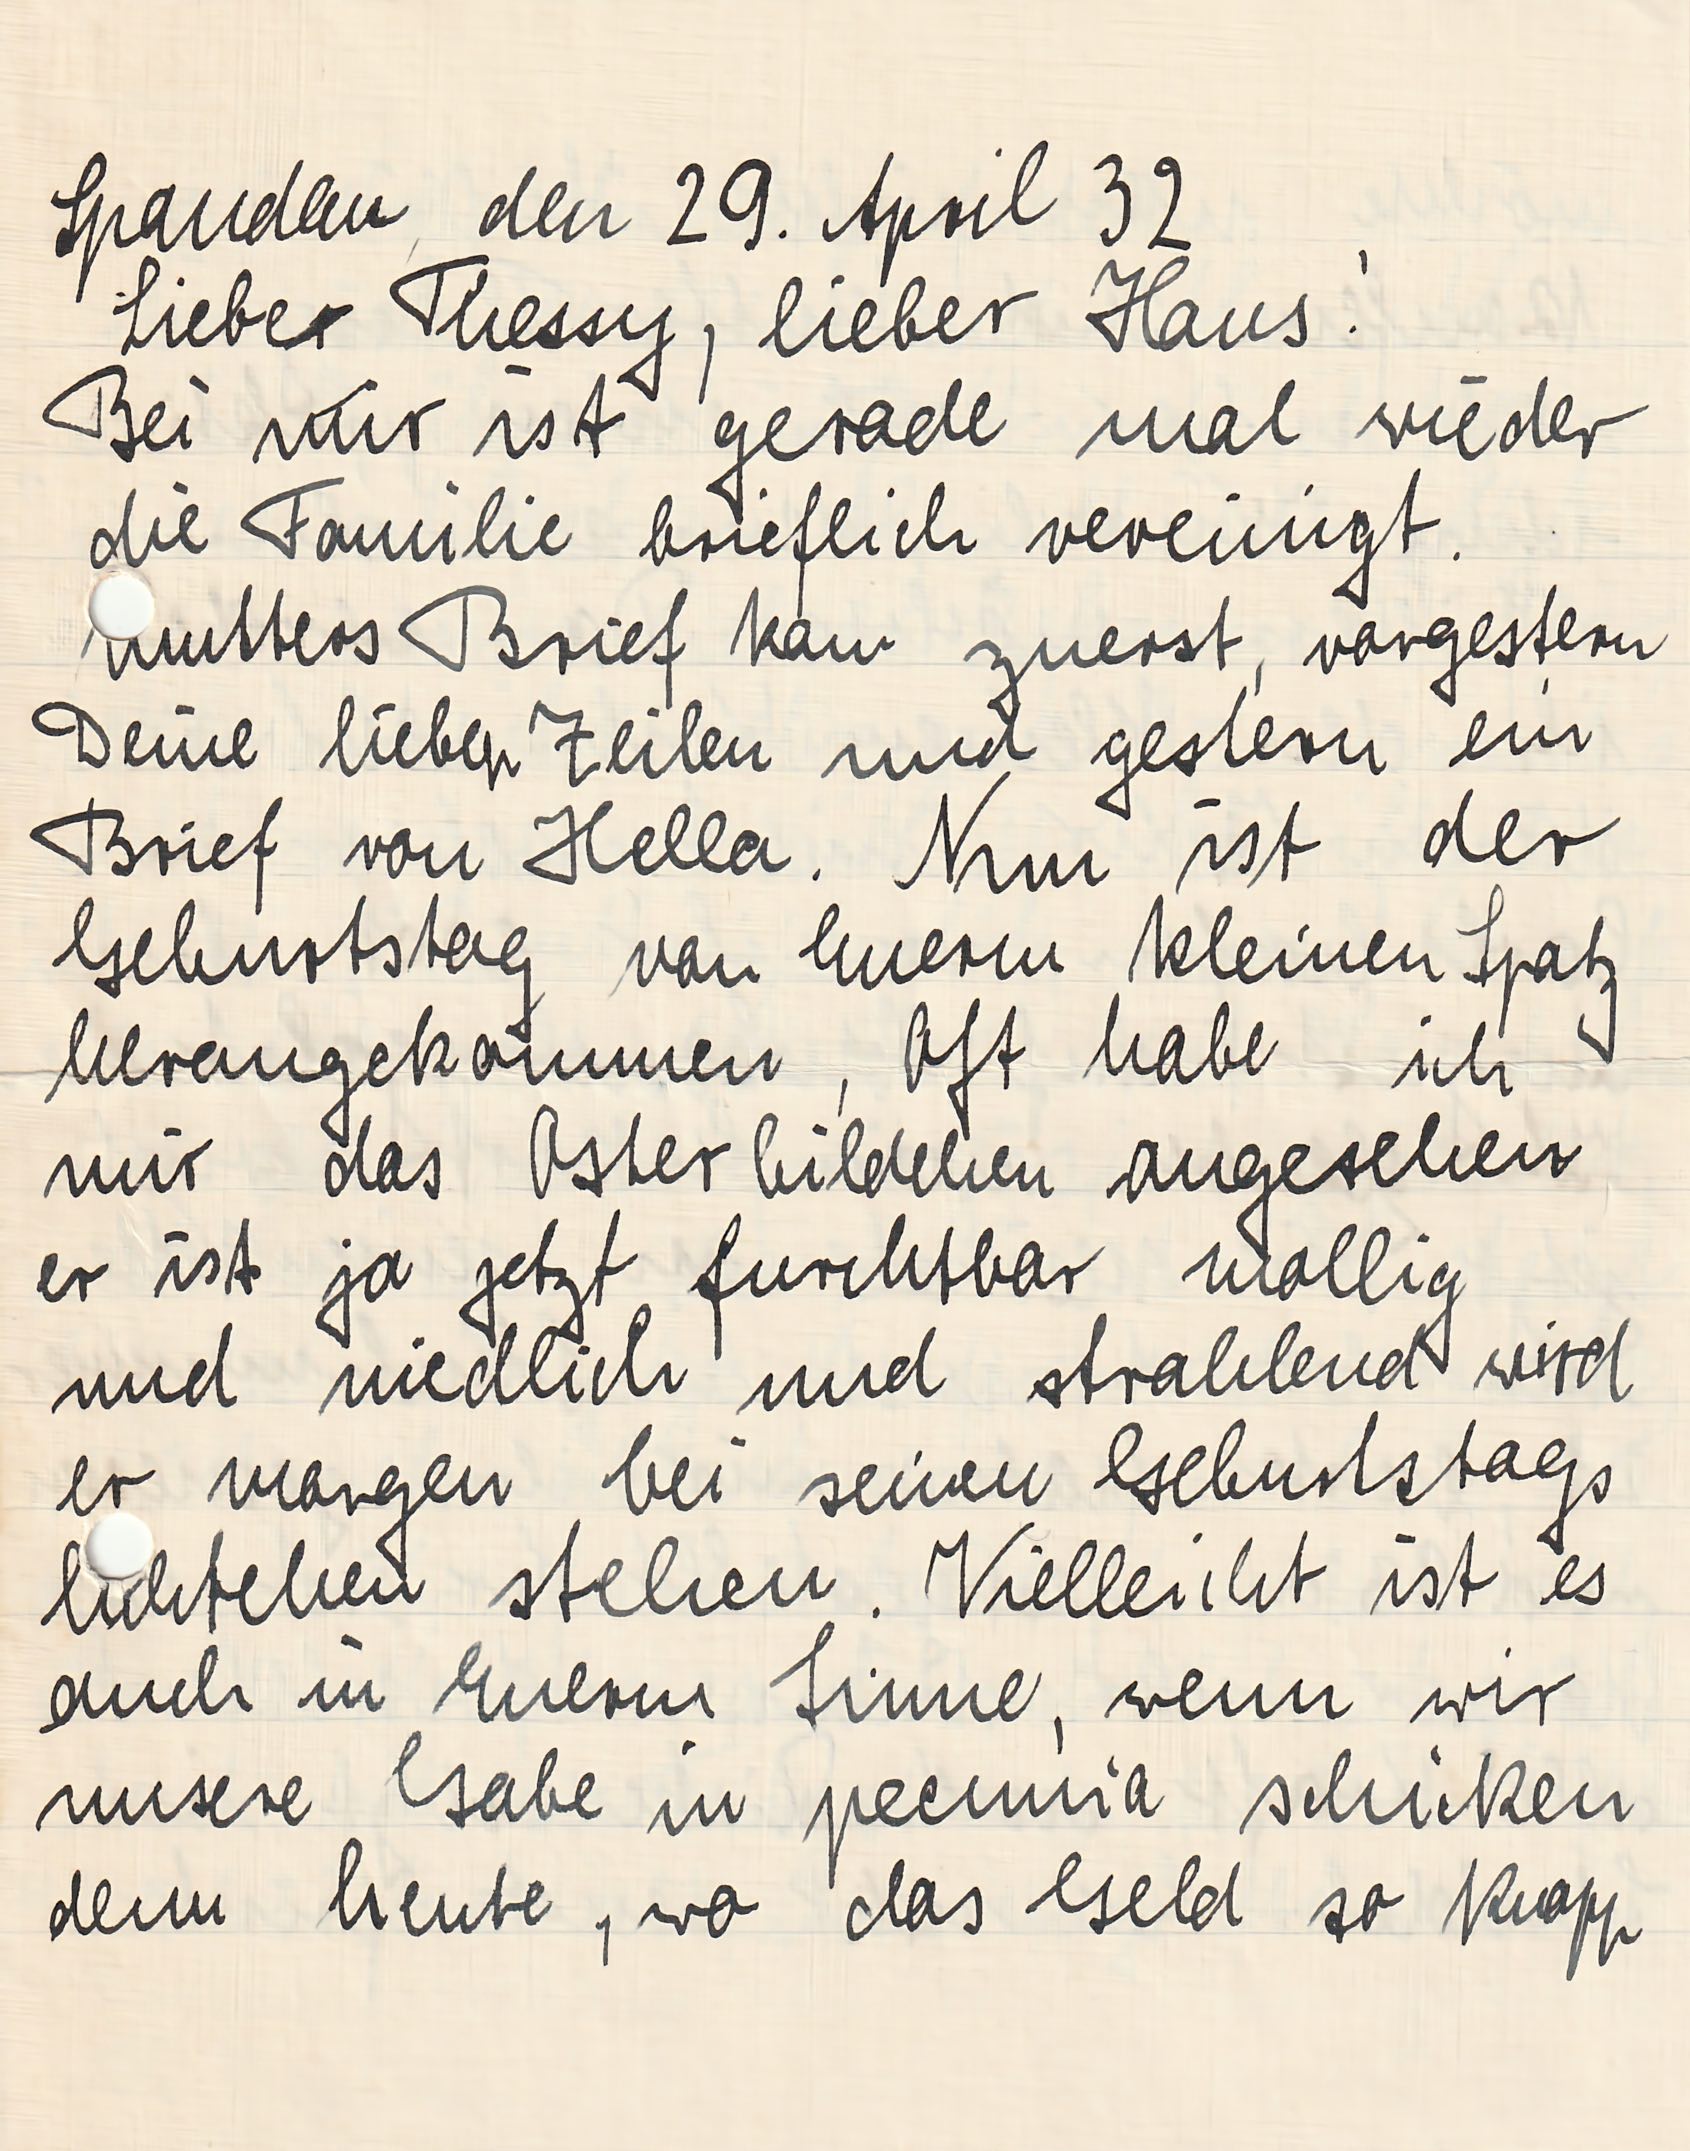 Spandau, den 29. April 32
Liebe Thessy, lieber Hans!
Bei mir ist gerade mal wieder
die Familie brieflich vereinigt.
Mutters Brief kam zuerst, vorgestern
Deine lieben Zeilen und gestern ein
Brief von Hella. Nun ist der
Geburtstag von Euerm kleinen Spatz
herangekommen, Oft habe ich
mir das Osterbildchen angesehen
er ist ja jetzt furchtbar mollig
und niedlich und strahlend wird
er morgen bei seinen Geburtstags
lichtchen stehen. Vielleicht ist es
auch in Euerm Sinne, wenn wir
unsere Gabe in pecunia schicken
denn heute, wo das Geld so knapp